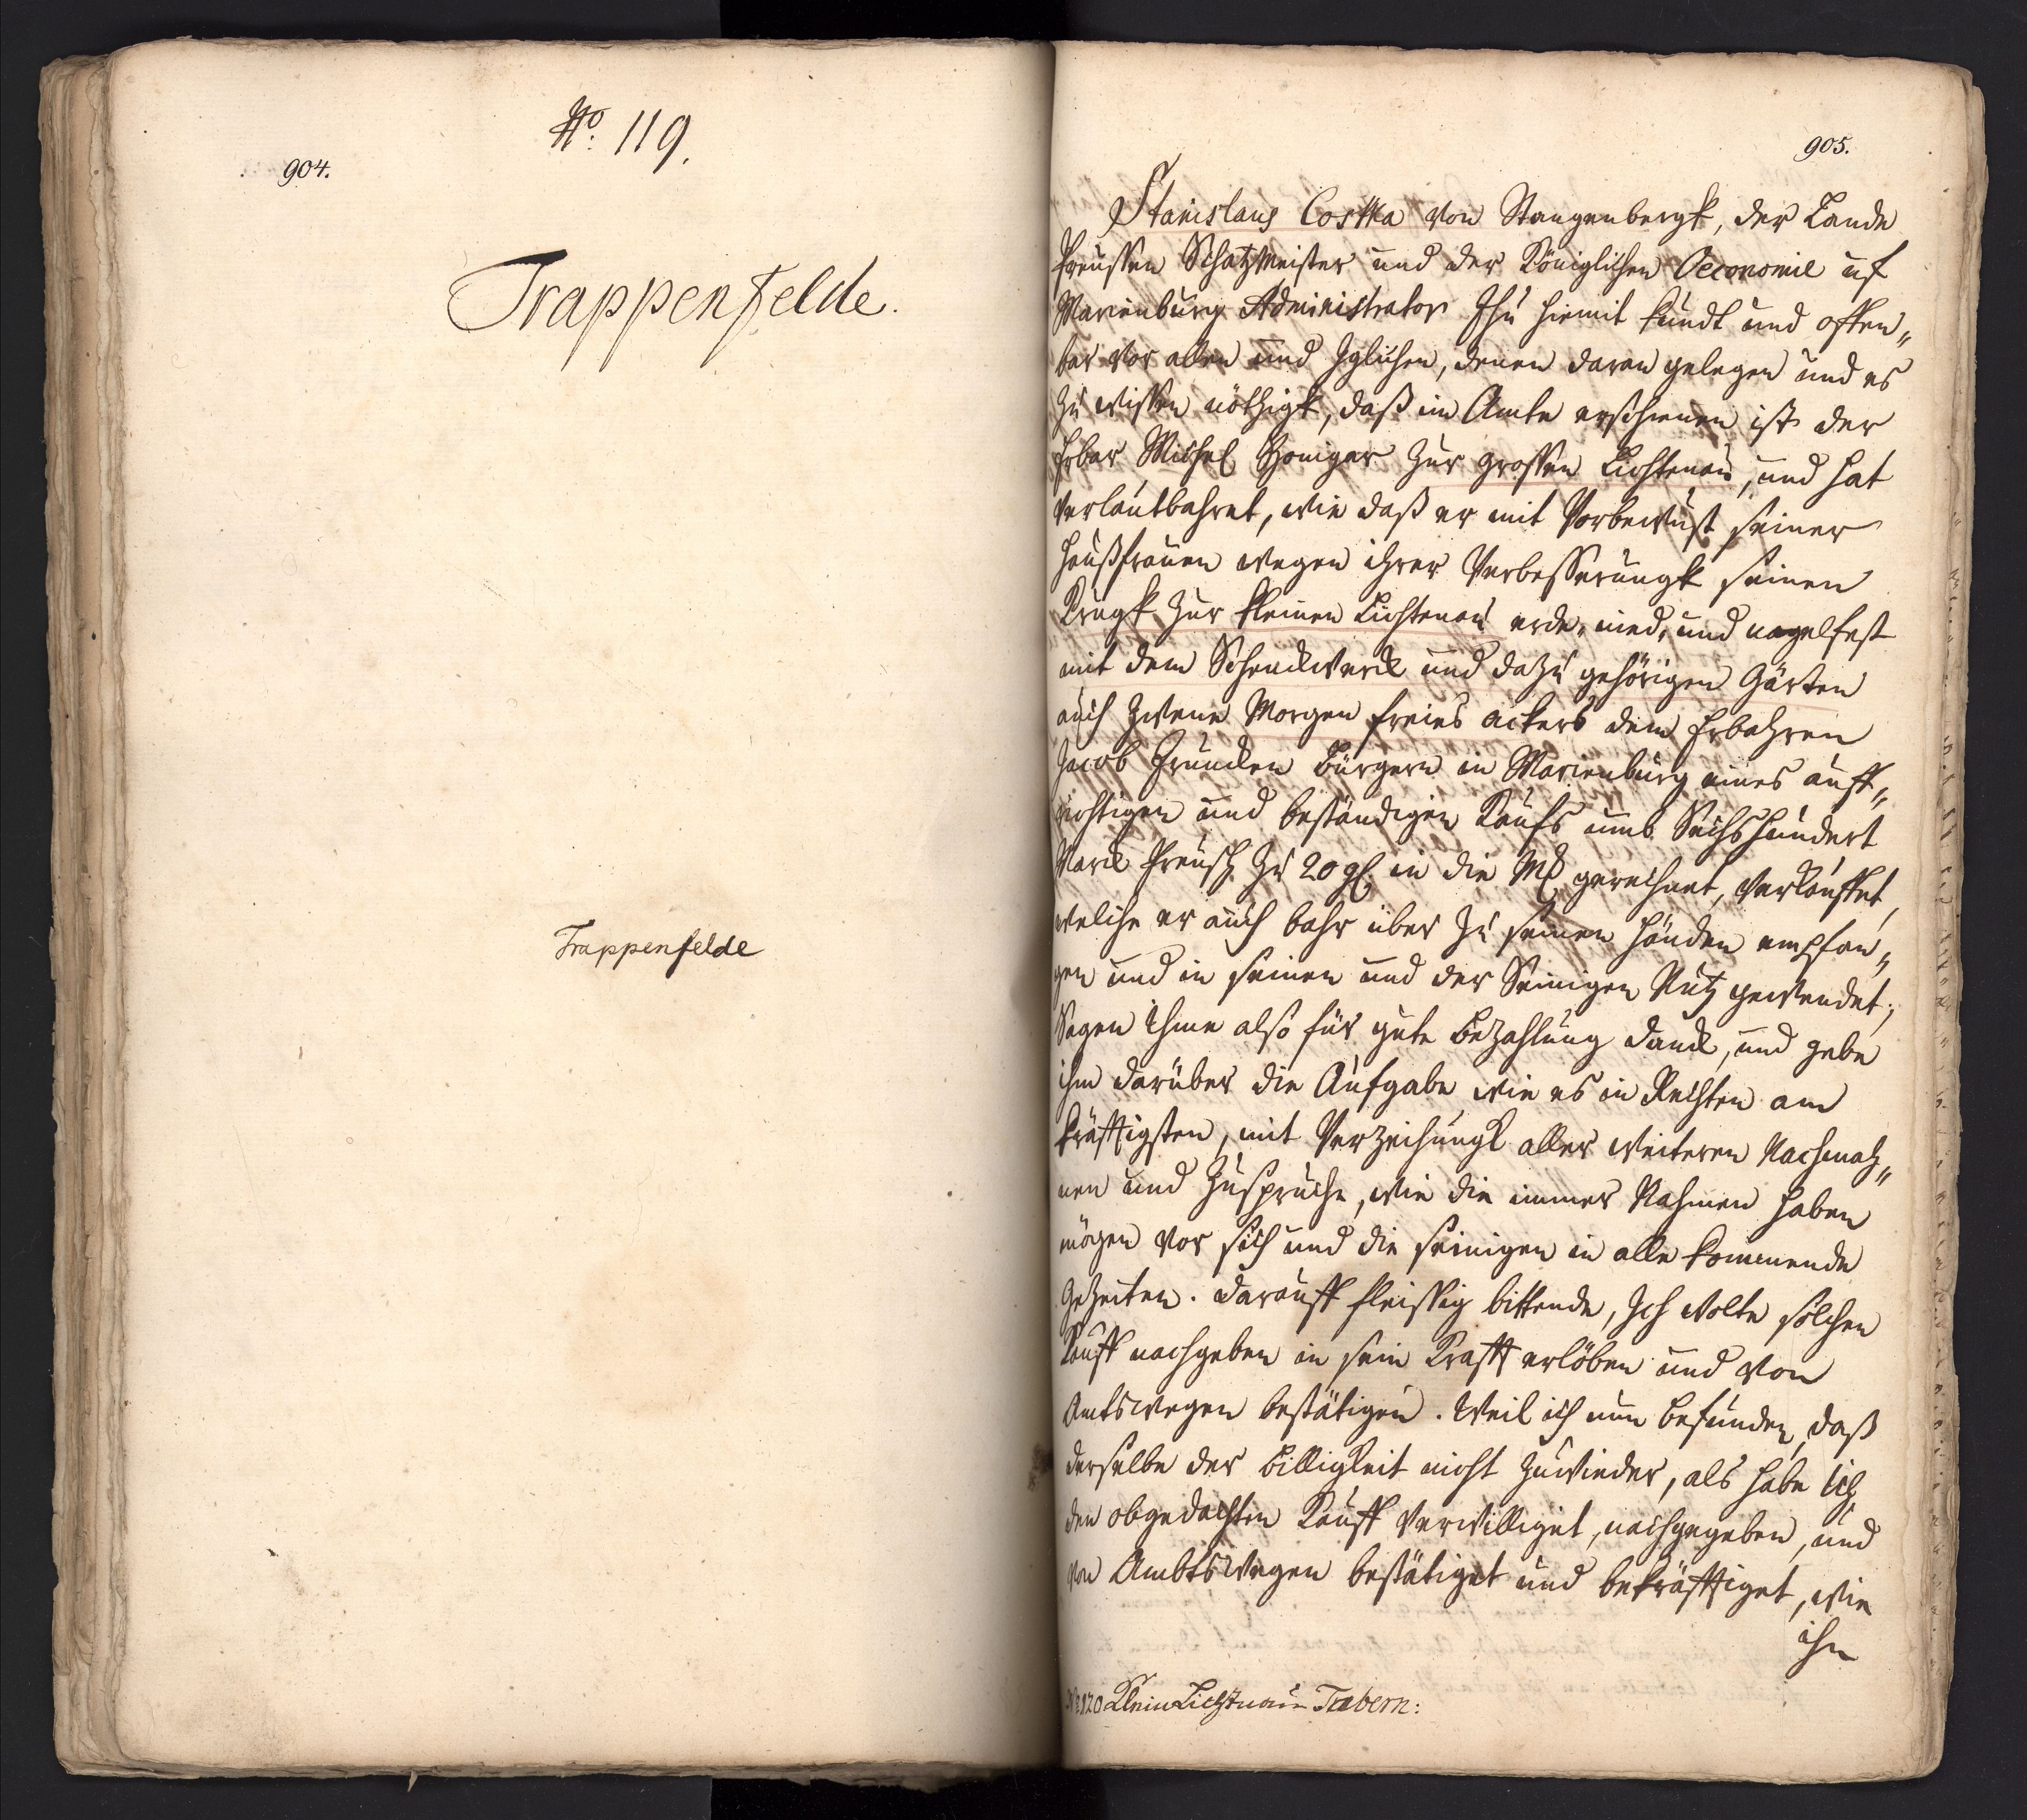 904.
No. 119.
Trappenfelde.
Trappenfelde
905.
Stanislaus Costka von Stangenbergk, der Lande
Preussen Schatzmeister und der Königlichen Oeconomie uf
Marienburg Administrator Thu hiemit kundt und offen„
bar vor allen und Jglichen, denen daran gelegen und es
zu wissen nöthigk, daß im Amte erschienen ist der
Erbar Michel Honigar zur grossen Lichtenau, und hat
verlautbahret, wie daß er mit Vorbewust seiner
Haußfrauen wegen ihrer Verbesserungk seinen
Krugk zur kleinen Lichtenau erde, nied, und nagelfest
mit dem Schenckwerck und dazu gehörigen Gärten
auch zweene Morgen freies ackers dem Erbahren
Jacob Fruncken Bürgern in Marienburg eines auff„
richtigen und beständigen Kaufs umb Sechshundert
Marck Preusch zu 20 gl. in die Mk gerechnet, verkauffet,
welche er auch bahr über zu seinen Händen empfan„
gen und in seinen und der Seinigen Nutz gewendet,
Sagen Ihme also für gute Bezahlung danck, und gebe
ihm darüber die Aufgabe wie es in Rechten am
kräfftigsten, mit Verzeihungk aller weiteren Nachmah„
nen und Zusprüche, wie die immer Nahmen haben
mögen vor sich und die seinigen in alle kommende
Gezeiten. Darauff fleissig bittende, Ich wolte solchen
Kauff nachgeben in sein Krafft erlöben und von
Amtswegen bestätigen. Weil ich nun befunden, daß
derselbe der Billigkeit nicht zuwieder, als habe Ich
den obgedachten Kauff verwilliget, nachgegeben, und
von Ambtswegen bestätiget und bekräfftiget, wie
ihn
No. 120 Klein Lichtnau Tabern: